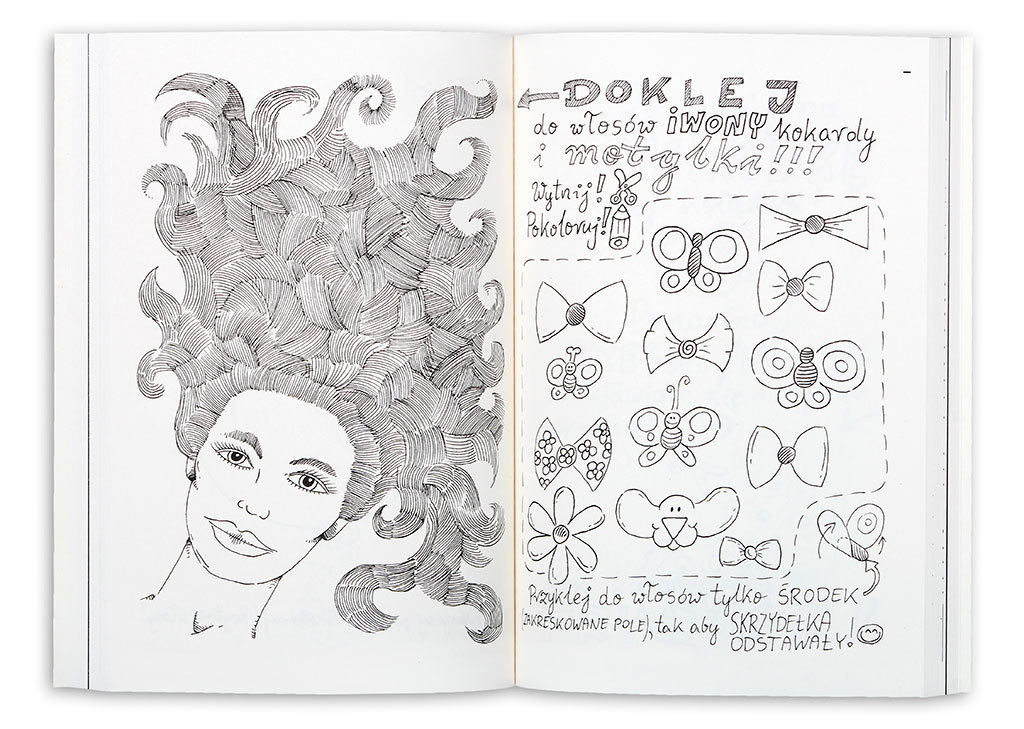 DOKLEJ
do włosów iWONY kokardy
i motylki!!!
Wytnij!
Pokoloruj!
Przyklej do włosów tylko ŚRODEK
(ZAKRESKOWANE POLE), tak aby SKRZYDEŁKA
ODSTAWAŁY!